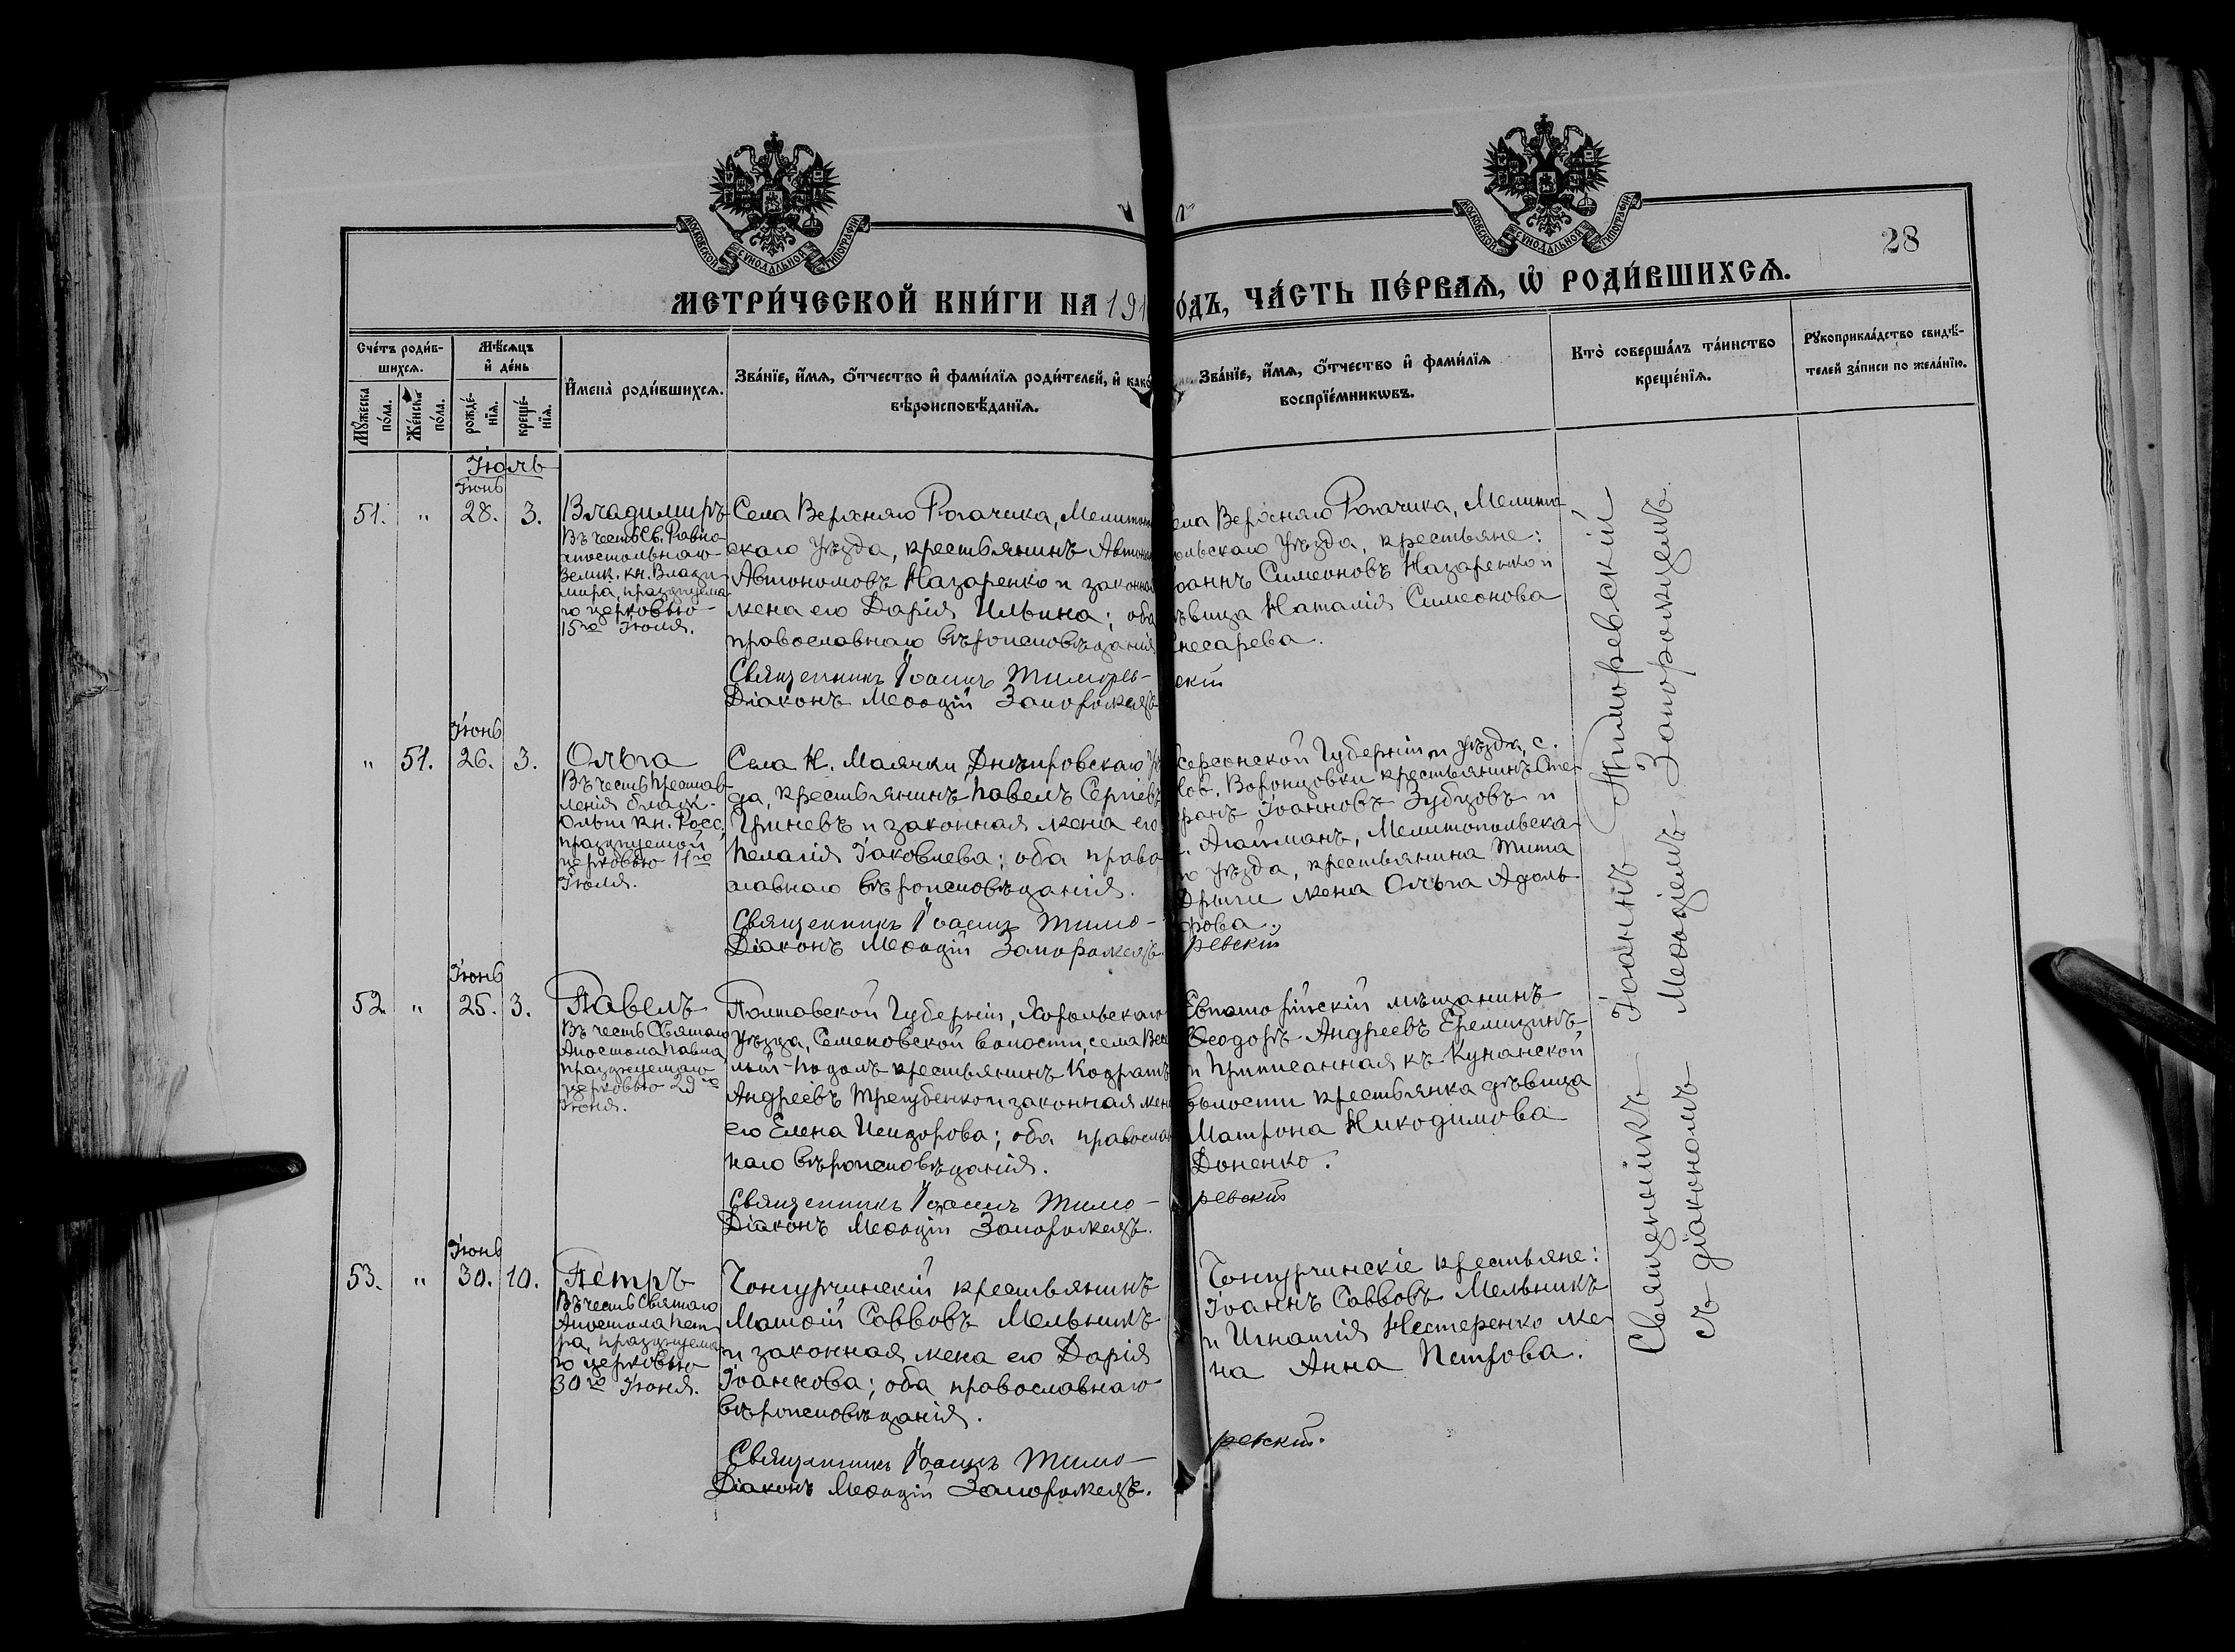 МОСКОВСКОЙ СѴНОДАЛЬНОЙ ТИПОГРАФІИ
МОСКОВСКОЙ СѴНОДАЛЬНОЙ ТИПОГРАФІИ
28
МЕТРИ́ЧЕСКОЙ КНИ́ГИ НА 191
О́ДЪ, ЧА́СТЬ ПЕ́РВАѦ, Ѡ҆ РОДИ́ВШИХСѦ.
Сче́тъ роди́в-
шихсѧ.
Мѣ́сѧцъ
и҆ де́нь
Мꙋ́жеска
по́ла.
Же́нска
по́ла.
рожде́-
нїѧ.
креще́-
нїѧ.
И҆мена̀ роди́вшихсѧ.
Зва́нїе, и҆́мѧ, ѻ҆́тчество и҆ фами́лїѧ роди́телей, и҆ како́
вѣроисповѣ́данїѧ.
Зва́нїе, и҆́мѧ, ѻ҆́тчество и҆ фами́лїѧ
воспрїе́мникѡвъ.
Кто̀ соверша́лъ та́инство
креще́нїѧ.
Рꙋкоприкла́дство свидѣ́-
телей за́писи по жела́нїю.
Іюль
Іюнь
51. " 28. 3.
Владимиръ
Въ честь Св. Равно-
апостольнаго
Велик. кн. Влади-
мира, празднуема-
го церковью
15го Іюля.
Села Верхняго Рогачика, Мелитополь
скаго уѣзда, крестьянинъ Автоном
Автономовъ Назаренко и законная
жена его Дарія Ильина; оба
православнаго вѣроисповѣданія
Священникъ Іоаннъ Тиморев-
Діаконъ Меѳодій Запорожецъ
ела Верхняго Рогачика, Мелито-
польскаго уѣзда, крестьяне:
Іоаннъ Симеоновъ Назаренко и
ѣвица Наталія Симеонова
Снесарева.
скій
Іюнь
" 51. 26. 3.
Ольга
Въ честь представ-
ленія благ. к.
Ольги кн. Росс.
празднуемой
церковью 11го
Іюля.
Села Н. Маячки Днѣпровскаго уѣз
да, крестьянинъ Павелъ Сергіевъ
Гриневъ и законная жена его
Пелагія Іаковлева; оба право
славнаго вѣроисповѣданія.
Священникъ Іоаннъ Тимо-
Діаконъ Меѳодій Запорожецъ.
Херсонской Губерніи и уѣзда, с.
Нов. Воронцовки крестьянинъ Сте-
фанъ Іоанновъ Зубцовъ и
с. Агайманъ, Мелитопольска-
го уѣзда, крестьянина Тита
Дрыги жена Ольга Адоль-
фова.
ревскій
Іюнь
52. " 25. 3.
Павелъ
Въ честь Святаго
Апостола Павла
празднуемаго
церковью 29го
Іюня.
Полтавской Губерніи, Хорольскаго
Уѣзда, Семеновской волости, села Весе
лый-Подолъ крестьянинъ Кодратъ
Андреевъ Трегубенко и законная жена
его Елена Исидорова; оба православ
наго вѣроисповѣданія.
Священникъ Іоаннъ Тимо-
Діаконъ Меѳодій Запорожецъ.
Евпаторійскій мѣщанинъ
Ѳеодоръ Андреевъ Еремизинъ
и приписанная къ Кунанской
волости крестьянка дѣвица
Матрона Никодимова
Доненко.
ревскій
Іюнь
53. " 30. 10.
Петръ
Въ честь Святаго
Апостола Пет-
ра, празднуема-
го церковью
30го Іюня.
Чонгурчинскій крестьянинъ
Матѳій Саввовъ Мельникъ
и законная жена его Дарія
Іоаннова; оба православнаго
вѣроисповѣданія.
Священникъ Іоаннъ Тимо-
Діаконъ Меѳодій Запорожецъ.
Чонгурчинскіе крестьяне:
Іоаннъ Саввовъ Мельникъ
и Игнатія Нестеренко же-
на Анна Петрова.
ревскій.
Священникъ Іоаннъ Тиморевскій
съ діакономъ Меѳодіемъ Запорожцемъ.